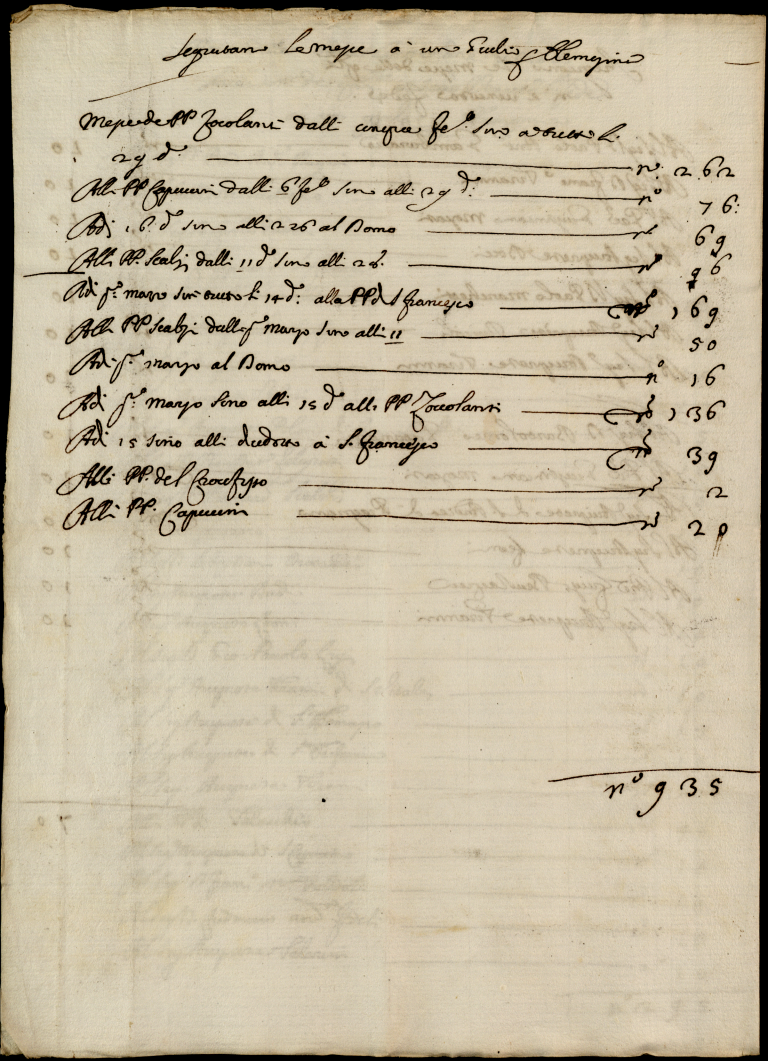 Seguitano le messe à un Giulio l'Elemosina
Messe de PP Zocolanti dalli cinque feb.º sino a tutto li
29 d.º n.º 262
Alli PP Capuccini dalli 6 feb.º sino alli 29 d.º n.º 76
Adi 16 d.º sino alli 226 al Domo n.º 69
Alli PP. Scalzi dalli 11 d.º sino alli 28. n.º 96
Adi p.º marzo sin tutto li 14 d.º: alla PP di S francesco n.º 169
Alli PP Scalzi dalli p.º marzo sino alli 11 n.º 50
Adi p.º marzo al Domo n.º 16
Adi p.º marzo sino alli 15 d.º alli PP Zoccolanti n.º 136
Adi 15 sino alli dicidotto à S. francesco n.º 39
Alli PP. del Crocefisso n.º 2
Alli PP. Capuccini n.º 20
n.º 935